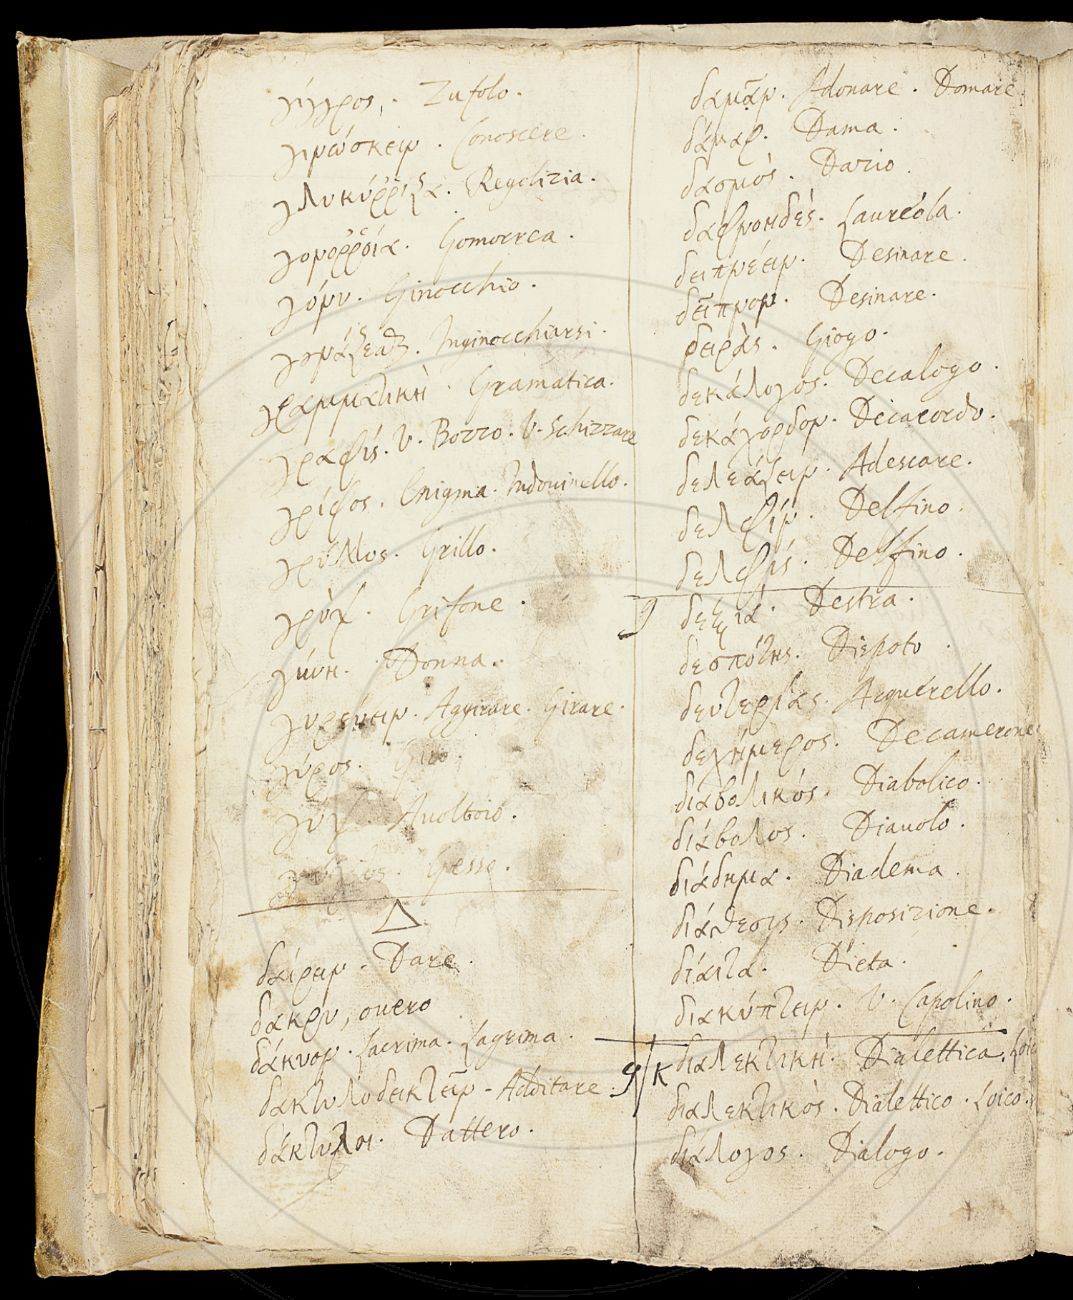 γίγγρος. Zufolo.
γινώσκειν. Conoscere.
γλυκύῤῥιζα. Regolizia.
γονόῤῥοια. Gomorrea.
γόνυ. Ginocchio.
Inginocchiarsi.
γραμματικὴ. Gramatica.
γραφίς. V. Bozzo. V. Schizzare
γρίφος. Enigma. Indovinello.
γρύλλος. Grillo.
γρὺψ. Grifone.
γύνη. Donna.
γυρεύειν. Aggirare. Girare.
γύρος. Giro.
γὺψ. Auoltoio.
Gesso.
Δ
δαίρειν. Dare.
δάκρυ, ouero
δάκυον. Lacrima. Lagrima.
δακτυλοδεικτεῖν. Additare.
δάκτυλοι. Dattero.
δαμᾷν. Adonare. Domare.
δάμαρ. Dama.
δασμὸς. Dazio.
δαφνοειδὲς. Laureola.
δειπνέειν. Desinare.
δεῖπνον. Desinare.
δειρὰς. Giogo.
δεκάλογος. Decalogo.
δεκάχορδον. Decacordo.
δελεάζειν. Adescare.
δελφίν. Delfino.
δελφὶς. Delfino.
9 δεξιά. Destra.
δεσπότης. Dispoto.
δευτερίας. Acquerello.
δεχήμερος. Decamerone
διαβολικός. Diabolico.
διάβολος. Diauolo.
διάδημα. Diadema.
διάθεσις. Disposizione.
δίαιτα. Dieta.
διακύπτειν. V. Capolino.
9/K διαλεκτικὴ. Dialettica.
διαλεκτικὸς. Dialettico. Loico.
διάλογος. Dialogo.